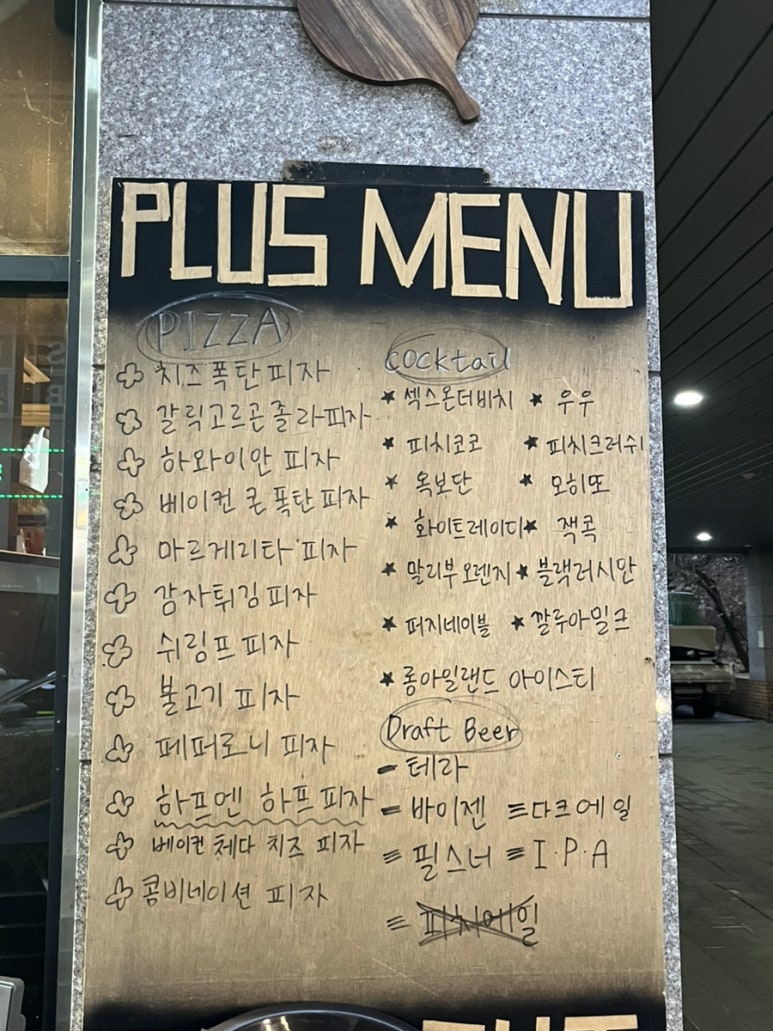 PLUS MENU
PIZZA
치즈폭탄피자
갈릭고르곤졸라피자
하와이안 피자
베이컨 콘 폭탄 피자
마르게리타 피자
감자튀김피자
쉬림프피자
불고기 피자
페퍼로니 피자
하프엔 하프피자
베이컨 체다 치즈 피자
콤비네이션 피자
cocktail
섹스온더비치 우우
피치코코 피치크러쉬
옥보단 모히또
화이트레이디 잭콕
말리부오렌지 블랙러시안
퍼지네이블 깔루아밀크
롱아일랜드 아이스티
Draft Beer
테라
바이젠 다크에일
필스너 I.P.A
피치에일